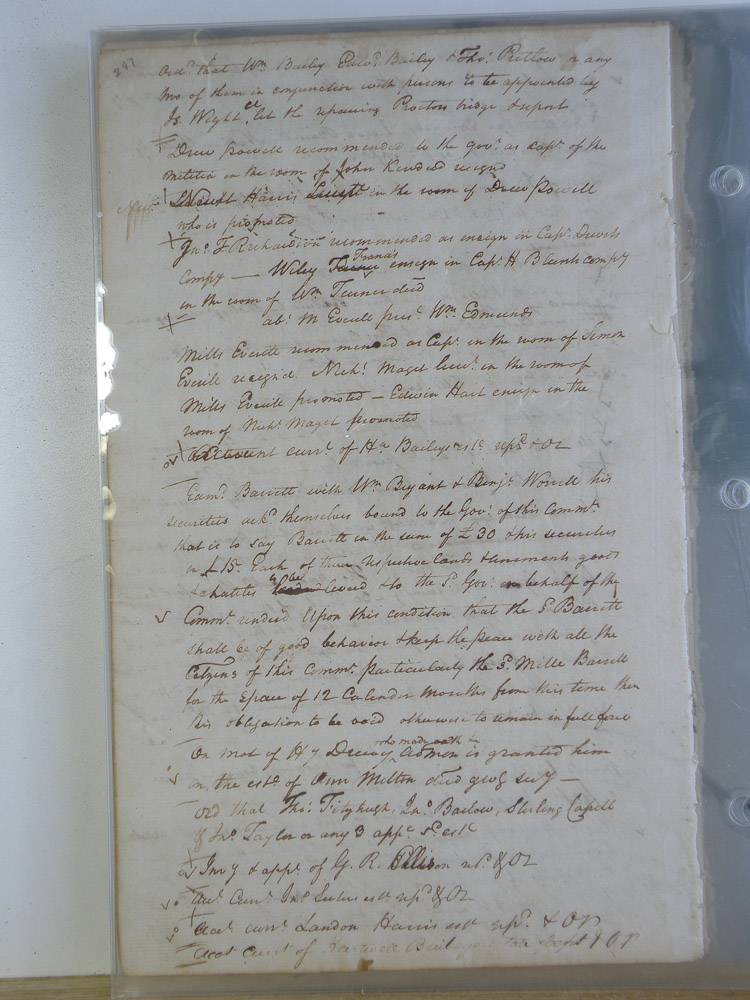 287
Ord. that Wm Bailey Edwd Bailey & Thos Pretlow or any
two of them in conjunction with persons to be appointed by
Is. Wight Ct. let the repairing Proctors bridge & report
Drew Powell recommended to the Govr. as Capt. of the
militia in the room of John Kindred resignd
Harris Lieut in the room of Drew Powell
who is promoted
Jno. F Richardson recommended as ensign in Capt. Drews
Compy — Wiley Francis ensign in Capt. H Blunts compy
in the room of Wm Turner decd
abt. M Everitt prest. Wm. Edmunds
Mills Everitt recommended as Capt. in the room of Simon
Everitt resignd. Nichs. Maget Lieut. in the room of
Mills Everitt promoted — Edwin Hart ensign in the
room of Nichs Maget promoted
Account currt. of Baileys est. rept. & OR
Saml. Barrett with Wm Bryant & Benjn. Worrell his
securities ackd. themselves bound to the Govr. of this Commw.
that is to say Barrett in the sum of £30 & his securities
in £15 Each of their respective lands & tenements goods
& chattles to be levied & to the sd. Govr. on behalf of the
Commw. rendered Upon this condition that the sd. Barrett
shall be of good behavior & keep the peace with all the
Citizens of this Commw. particularly the sd. Mills Barrett
for the Space of 12 Calendar Months from this time then
this obligation to be void otherwise to remain in full force
On mot of Hy Drewry who made oath admon is granted him
on the est. of Ann Milton decd givg secy —
ord that Thos. Fitzhugh, Jno. Barlow, Sterling Capell
& Jno. Taylor or any 3 appr. sd. est.
Invy & appt. of G. R. Ellison rt. & OR
Acct. Currt. Jno. est. rept. & OR
Acct. currt. Landon Harris est. rept. & OR
Acct Currt of & OR